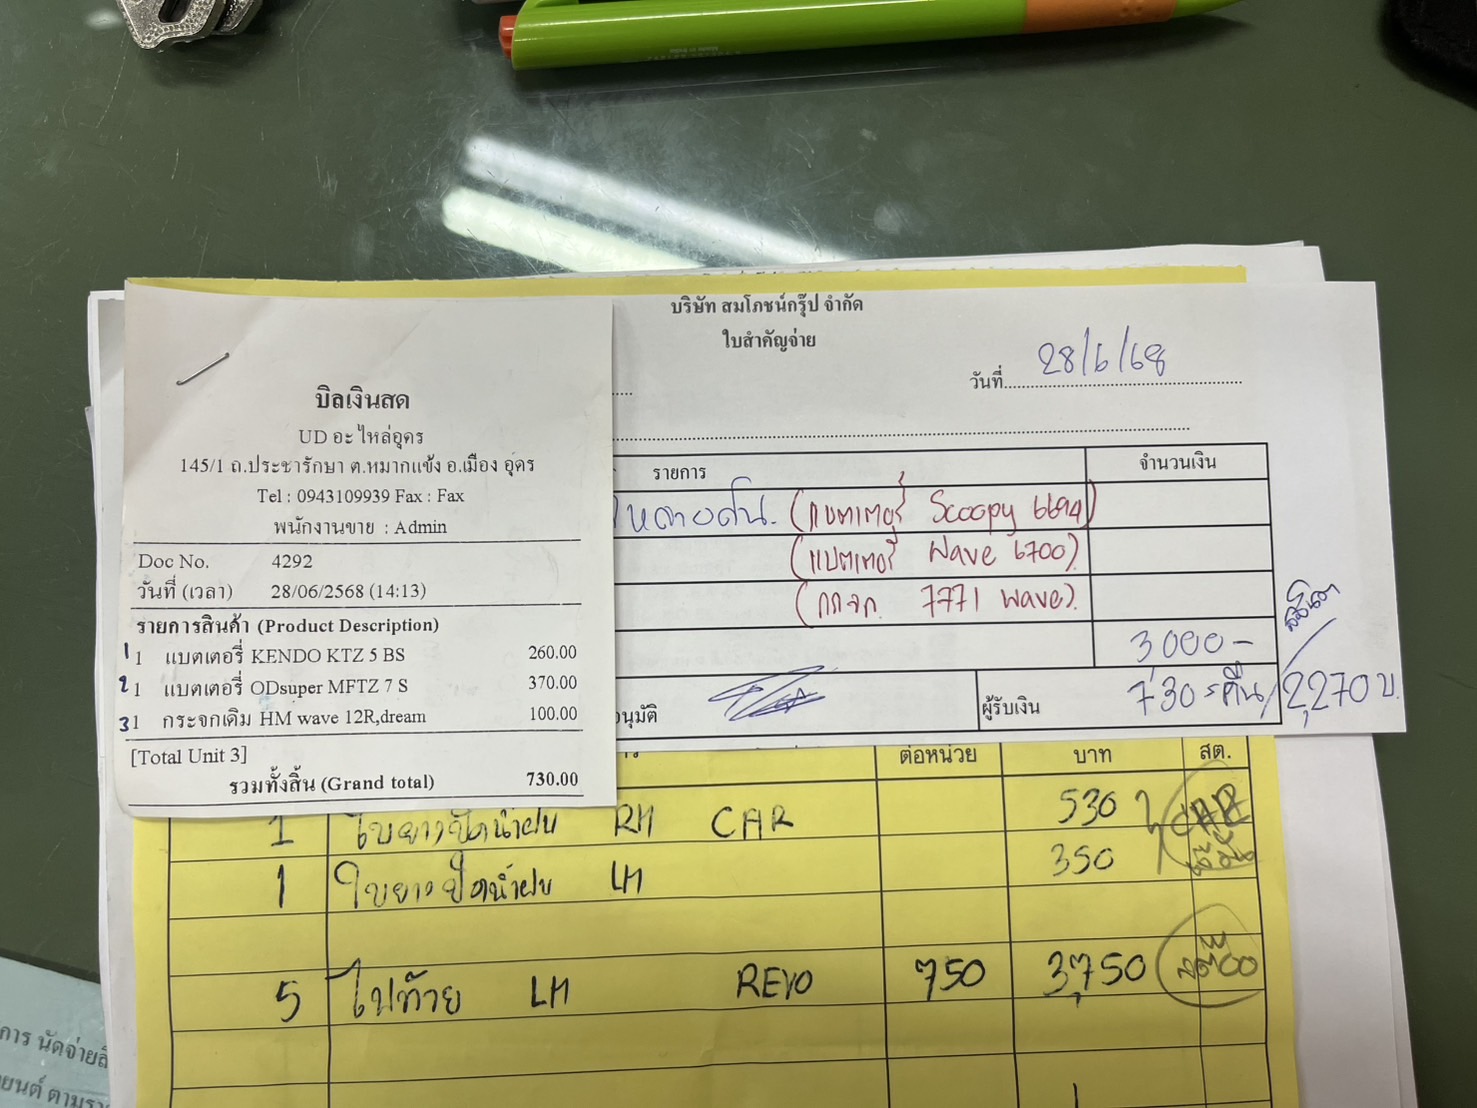 บริษัท สมโภชน์กรุ๊ป จำกัด
ใบสำคัญจ่าย
วันที่ 28/6/68
รายการ
จำนวนเงิน
(แบตเตอรี่ Scoopy 6694)
(แบตเตอรี่ Wave 6700)
(กระจก 7771 wave)
3000-
อนุมัติ
ผู้รับเงิน
730 = คืน/2,270 บ.
บิลเงินสด
UD อะไหล่อุดร
145/1 ถ.ประชารักษา ต.หมากแข้ง อ.เมือง อุดร
Tel : 0943109939 Fax : Fax
พนักงานขาย : Admin
Doc No. 4292
วันที่ (เวลา) 28/06/2568 (14:13)
รายการสินค้า (Product Description)
1 1 แบตเตอรี่ KENDO KTZ 5 BS 260.00
2 1 แบตเตอรี่ ODsuper MFTZ 7 S 370.00
3 1 กระจกเดิม HM wave 12R,dream 100.00
[Total Unit 3]
รวมทั้งสิ้น (Grand total) 730.00
ต่อหน่วย บาท สต.
1 ใบยางปัดน้ำฝน RH CAR 530
1 ใบยางปัดน้ำฝน LH 350
5 ไฟท้าย LH REVO 750 3,750
การ นัดจ่ายสิ